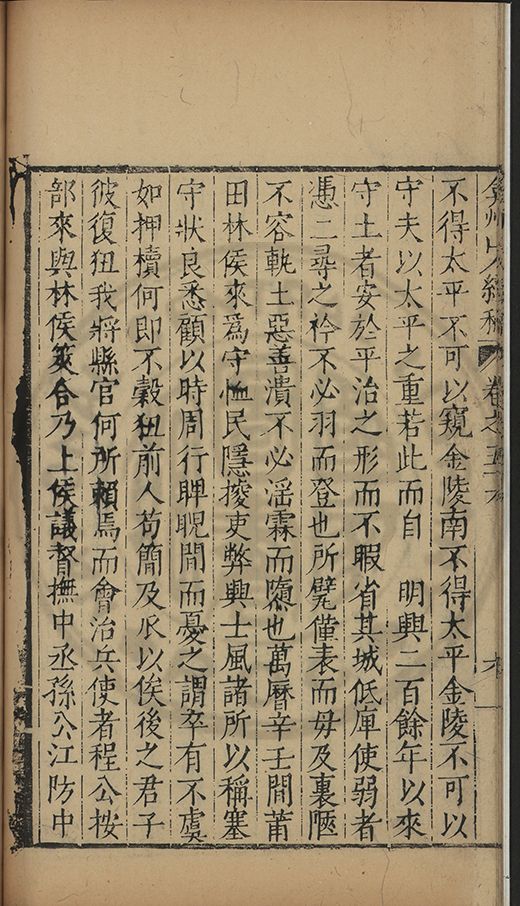 弇州山人續稿 卷之五十六
不得太平不可以窺金陵南不得太平金陵不可以
守夫以太平之重若此而自 明興二百餘年以來
守土者安於平治之形而不暇省其城低庳使弱者
憑一尋之衿不必羽而登也所甓僅表而毋及裏陿
不容軌土惡善潰不必滛霖而墮也萬曆辛壬間莆
田林侯來為守恤民隱搜吏弊興士風諸所以稱塞
守狀良悉顧以時周行睥睨間而憂之謂卒有不虞
如押櫝何即不穀狃前人苟簡及瓜以俟後之君子
彼復狃我將縣官何所賴焉而會治兵使者程公按
部來與林侯筴合乃上侯議督撫中丞孫公江防中